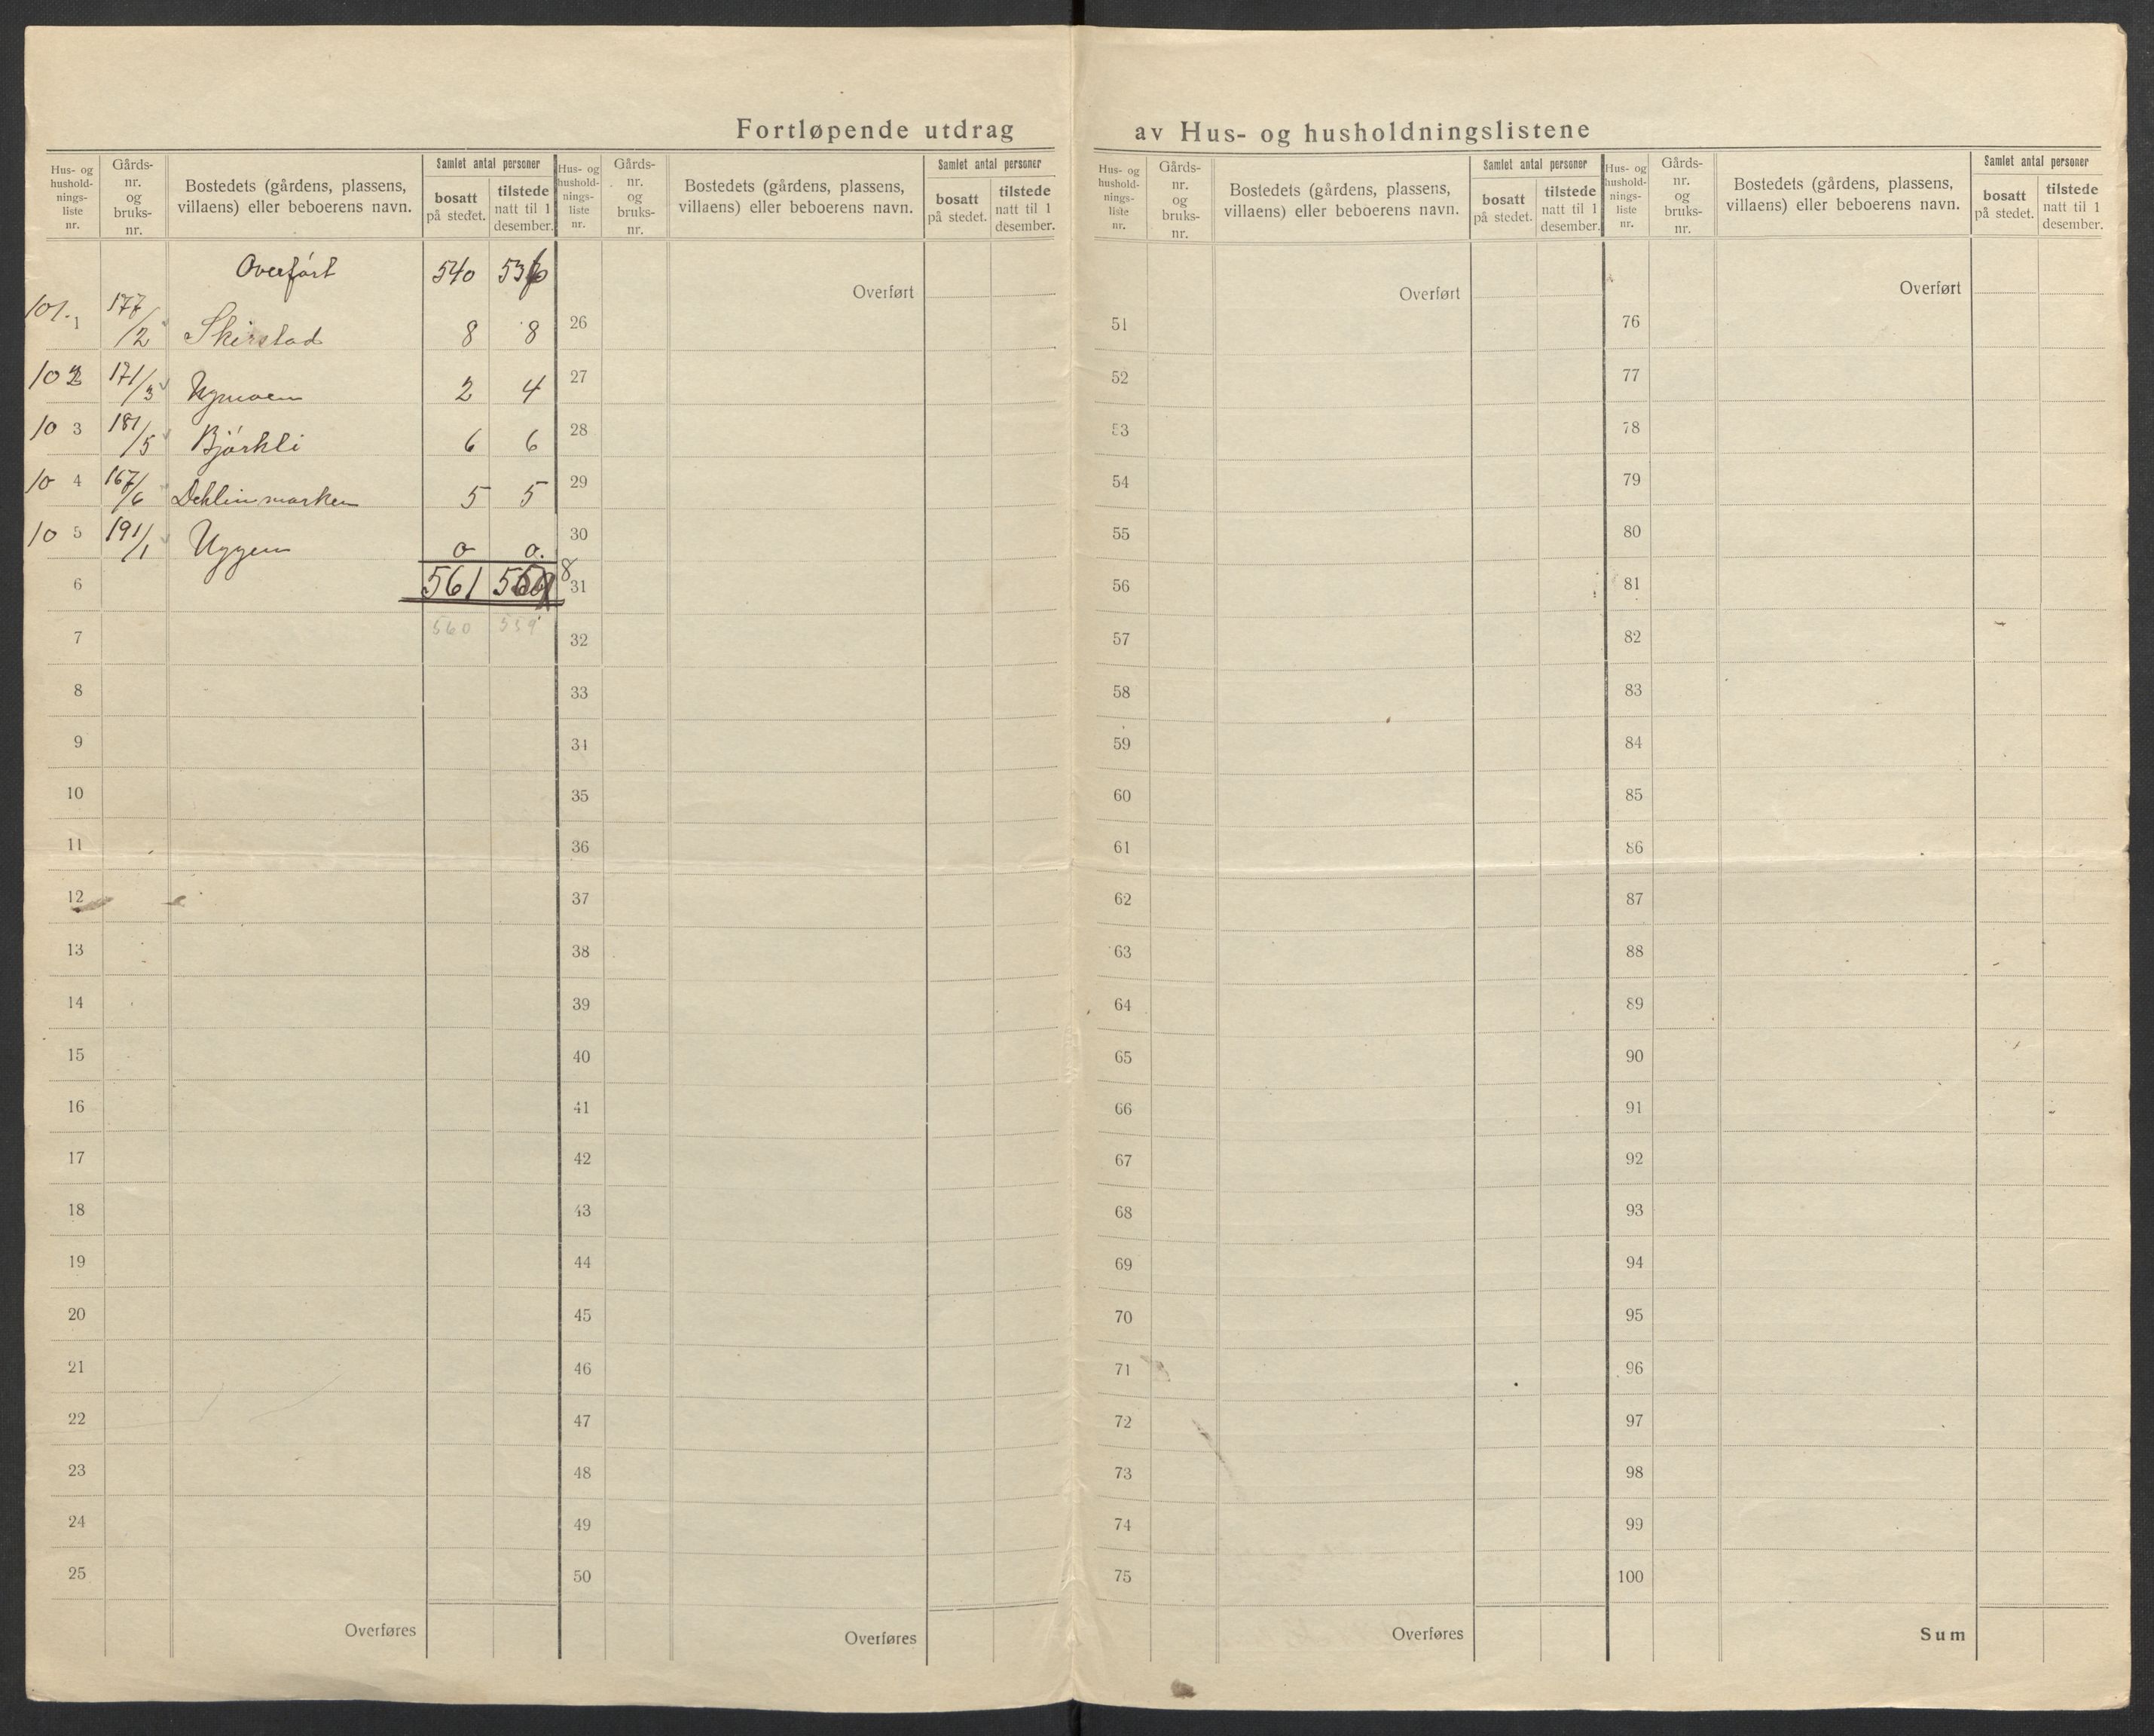 Fortløpende utdrag av Hus- og husholdningslistene
Hus- og hushold- nings- liste nr. Gårds- nr. og bruks- nr. Bostedets (gårdens, plassens, villaens) eller beboerens navn. Samlet antal personer bosatt på stedet. tilstede natt til 1 desember.
Hus- og hushold- nings- liste nr. Gårds- nr. og bruks- nr. Bostedets (gårdens, plassens, villaens) eller beboerens navn. Samlet antal personer bosatt på stedet. tilstede natt til 1 desember.
Hus- og hushold- nings- liste nr. Gårds- nr. og bruks- nr. Bostedets (gårdens, plassens, villaens) eller beboerens navn. Samlet antal personer bosatt på stedet. tilstede natt til 1 desember.
Hus- og hushold- nings- liste nr. Gårds- nr. og bruks- nr. Bostedets (gårdens, plassens, villaens) eller beboerens navn. Samlet antal personer bosatt på stedet. tilstede natt til 1 desember.
Overført 540 536
101. 1 177/2 Skirstad 8 8
102 171/3 2 4
10 3 181/5 Bjørkli 6 6
10 4 167/6 Dehlinmarken 5 5
10 5 191/1 Uggen 0 0.
6 561
7 560 559
8
9
10
11
12
13
14
15
16
17
18
19
20
21
22
23
24
25
Overføres
Overført
26
27
28
29
30
8
31
32
33
34
35
36
37
38
39
40
41
42
43
44
45
46
47
48
49
50
Overføres
Overført
51
52
53
54
55
56
57
58
59
60
61
62
63
64
65
66
67
68
69
70
71
72
73
74
75
Overføres
Overført
76
77
78
79
80
81
82
83
84
85
86
87
88
89
90
91
92
93
94
95
96
97
98
99
100
Sum